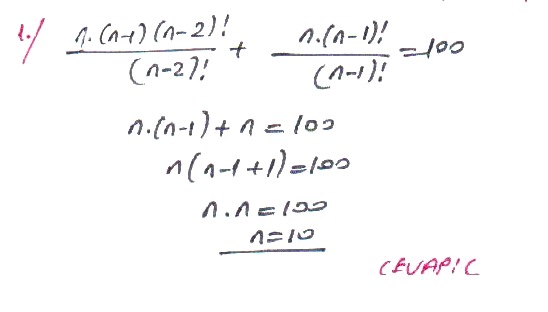 1./ n.(n-1)(n-2)!/(n-2)! + n.(n-1)!/(n-1)! = 100
n.(n-1)+n=100
n(n-1+1)=100
n.n=100
n=10
CEVAP:C